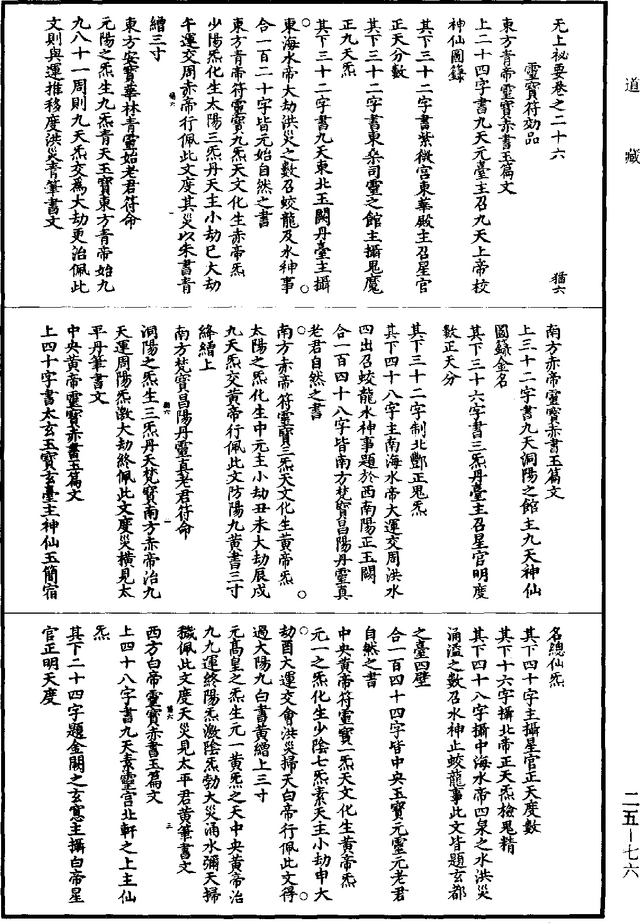 道藏
无上祕要卷之二十六
猶六
靈寶符効品
東方青帝靈寶赤書玉篇文
上二十四字書九天元臺主召九天上帝校
神仙圖籙
其下三十二字書紫微宮東華殿主召星官
正天分數
其下三十二字書東桑司靈之館主攝鬼魔
正九天炁
其下三十二字書九天東北玉闕丹臺主攝
東海水帝大劫洪災之數召蛟龍及水神事
合一百二十字皆元始自然之書
東方青帝符靈寶九炁天文化生赤帝炁
少陽炁化生太陽三炁丹天主小劫巳大劫
午運交周赤帝行佩此文度其災以朱書青
繒三寸
東方安寶華林青靈始老君符命
元陽之炁生九炁青天玉寶東方青帝始九
九八十一周則九天炁交爲大劫更治佩此
文則與運推移度洪災青筆書文
南方赤帝靈寶赤書玉篇文
上三十二字書九天洞陽之館主九天神仙
圖籙金名
其下三十六字書三炁丹臺主召星官明度
數正天分
其下三十二字制北酆正鬼炁
其下四十八字主南海水帝大運交周洪水
四出召蛟龍水神事題於西南陽正玉闕
合一百四十八字皆南方梵寶昌陽丹靈真
老君自然之書
南方赤帝符靈寶三炁天文化生黄帝炁
太陽之炁化生中元主小劫丑未大劫辰戌
九天炁交黄帝行佩此文防陽九黄書三寸
絳繒上
南方梵寶昌陽丹靈真老君符命
洞陽之炁生三炁丹天梵寶南方赤帝治九
天運周陽炁激大劫終佩此文度災横見太
平丹筆書文
中央黄帝靈寶赤書玉篇文
上四十字書太玄玉寶玄臺主神仙玉簡宿
名總仙炁
其下四十字主攝星官正天度數
其下十六字攝北帝正天炁檢鬼精
其下四十八字攝中海水帝四泉之水洪災
涌溢之數召水神止蛟龍事此文皆題玄都
之臺四壁
合一百四十四字皆中央玉寶元靈元老君
自然之書
中央黄帝符靈寶一炁天文化生黄帝炁
元一之炁化生少陰七炁素天主小劫申大
劫酉大運交會洪災掃天白帝行佩此文得
過大陽九白書黄繒上三寸
元高皇之炁生元一黄炁之天中央黄帝治
九九運終陽炁激陰炁勃大災涌水彌天掃
穢佩此文度天災見太平君黄筆書文
西方白帝靈寶赤書玉篇文
上四十八字書九天素靈宮北軒之上主仙
炁
其下二十四字題金闕之玄窓主攝白帝星
官正明天度
二五—七六